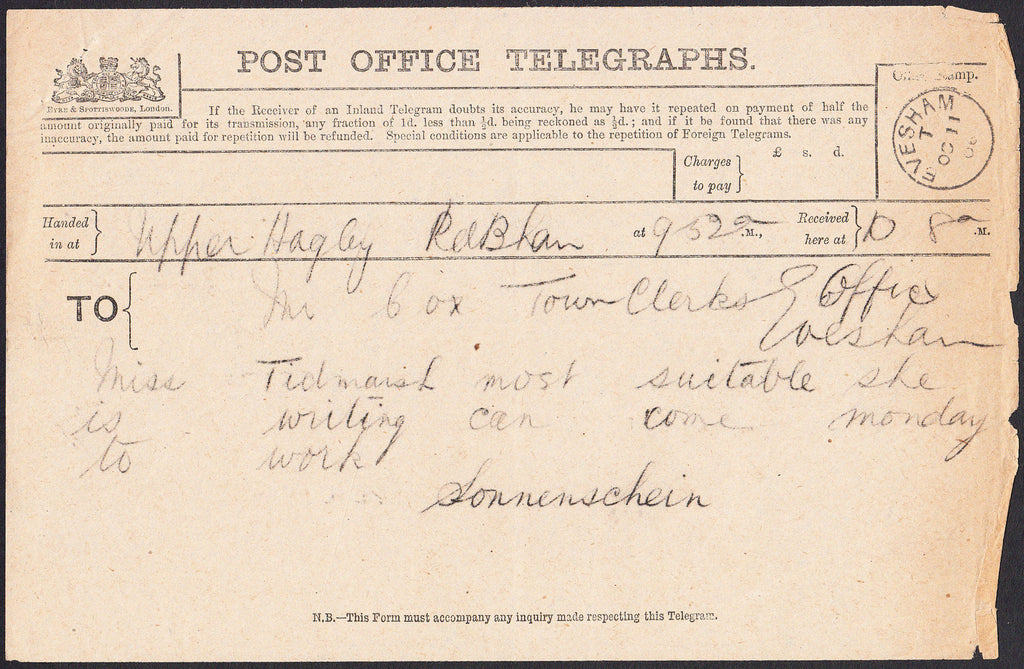 POST OFFICE TELEGRAPHS.
EYRE & SPOTTISWOODE, London.
If the Receiver of an Inland Telegram doubts its accuracy, he may have it repeated on payment of half the
amount originally paid for its transmission, any fraction of 1d. less than ½d. being reckoned as ½d.; and if it be found that there was any
inaccuracy, the amount paid for repetition will be refunded. Special conditions are applicable to the repetition of Foreign Telegrams.
Stamp.
EVESHAM
OC 11
Charges to pay } £ s. d.
Handed in at } Upper Hagley Rd Bham at 9 52 a .M., Received here at } 10 8 a .M.
TO { Mr Cox Town Clerks Office
Evesham
Miss Tidmarsh most suitable she
is writing can come monday
to work
Sonnenschein
N.B.—This Form must accompany any inquiry made respecting this Telegram.